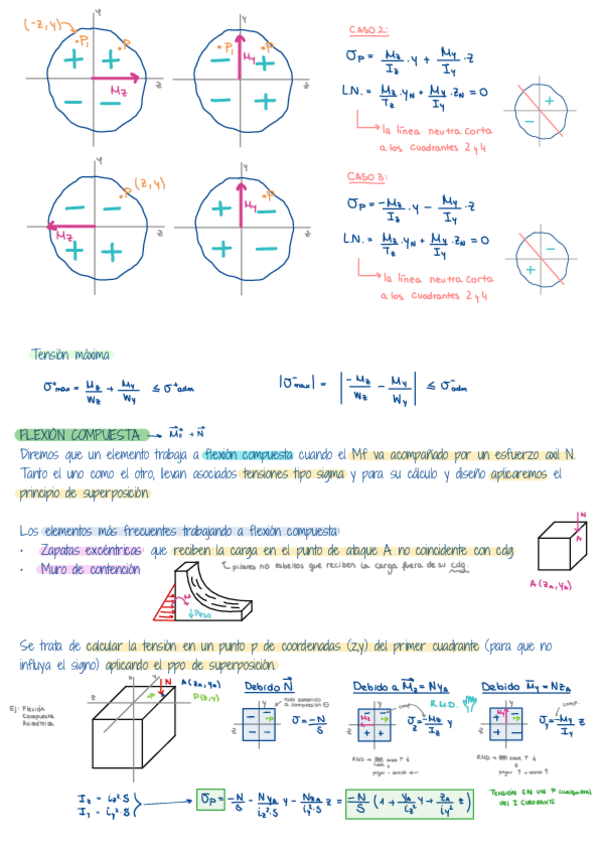 (-z,y)
y
P₁
P
Mz
z
y
P₁
P
My
z
CASO 2:
σp = Mz/Iz · y + My/Iy · z
L.N. = Mz/Tz · yN + My/Iy · zN = 0
la línea neutra corta
a los cuadrantes 2 y 4
y
P (z,y)
Mz
z
y
P
My
z
CASO 3:
σp = -Mz/Iz · y - My/Iy · z
L.N. = Mz/Tz · yN + My/Iy · zN = 0
la línea neutra corta
a los cuadrantes 2 y 4
Tensión máxima
σ⁺max = Mz/Wz + My/Wy ≤ σ⁺adm
|σ⁻max| = | -Mz/Wz - My/Wy | ≤ σ⁻adm
FLEXIÓN COMPUESTA → Mf + N
Diremos que un elemento trabaja a flexión compuesta cuando el Mf va acompañado por un esfuerzo axil N.
Tanto el uno como el otro, llevan asociados tensiones tipo sigma y para su cálculo y diseño aplicaremos el
principio de superposición.
Los elementos más frecuentes trabajando a flexión compuesta
• Zapatas excéntricas: que reciben la carga en el punto de ataque A no coincidente con cdg
• Muro de contención
pilares no esbeltos que reciben la carga fuera de su cdg.
M
N
A
A (zA, yA)
Se trata de calcular la tensión en un punto p de coordenadas (z,y) del primer cuadrante (para que no
influya el signo) aplicando el ppo de superposición.
Ej: Flexión
Compuesta
Asimétrica
z
y
N
A(zA, yA)
P(z,y)
Debido N
todo sometido
a compresión
P
σ = -N/S
Debido a Mz = N yA
R.M.D.
comp.
Mz
P
σz = -Mz/Iz y
Debido My = N zA
comp.
My
P
σy = -My/Iy z
Iz = iz² · S
Iy = iy² · S
σp = -N/S - N yA/iz²·S y - N zA/iy²·S z = -N/S (1 + yA/iz² y + zA/iy² z)
TENSIÓN EN UN P (cualquiera)
DEL I CUADRANTE